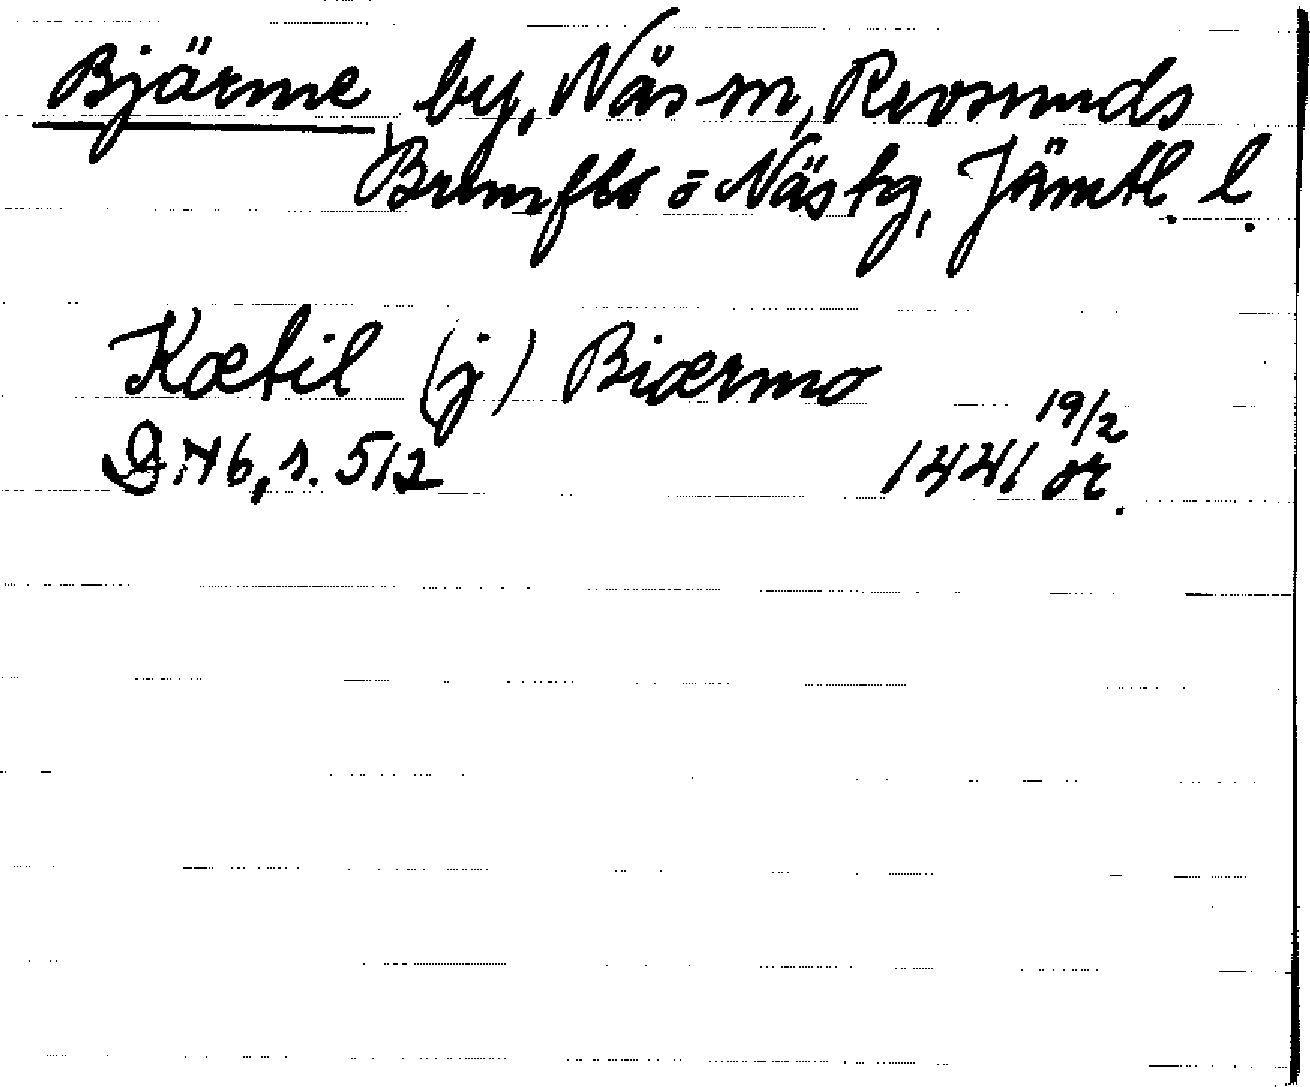 Bjärme, by, Näs sn, Revsunds
Brunflo o Näs tg, Jämtl. l.
Kætil (j) Biærmo
DN 16, s. 512
19/2
1441 or.